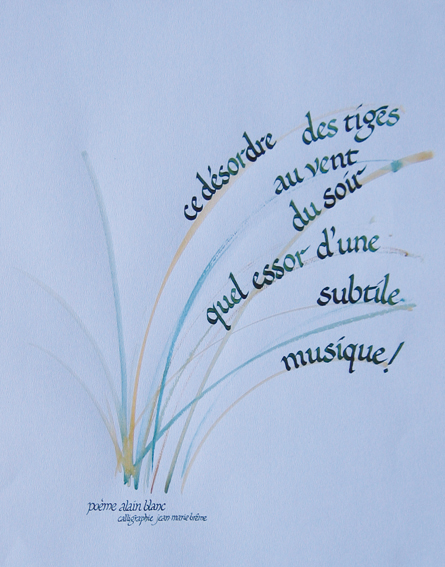 ce désordre des tiges
au vent
du soir
quel essor d'une
subtile
musique!
poème alain blanc
calligraphie jean marie brême